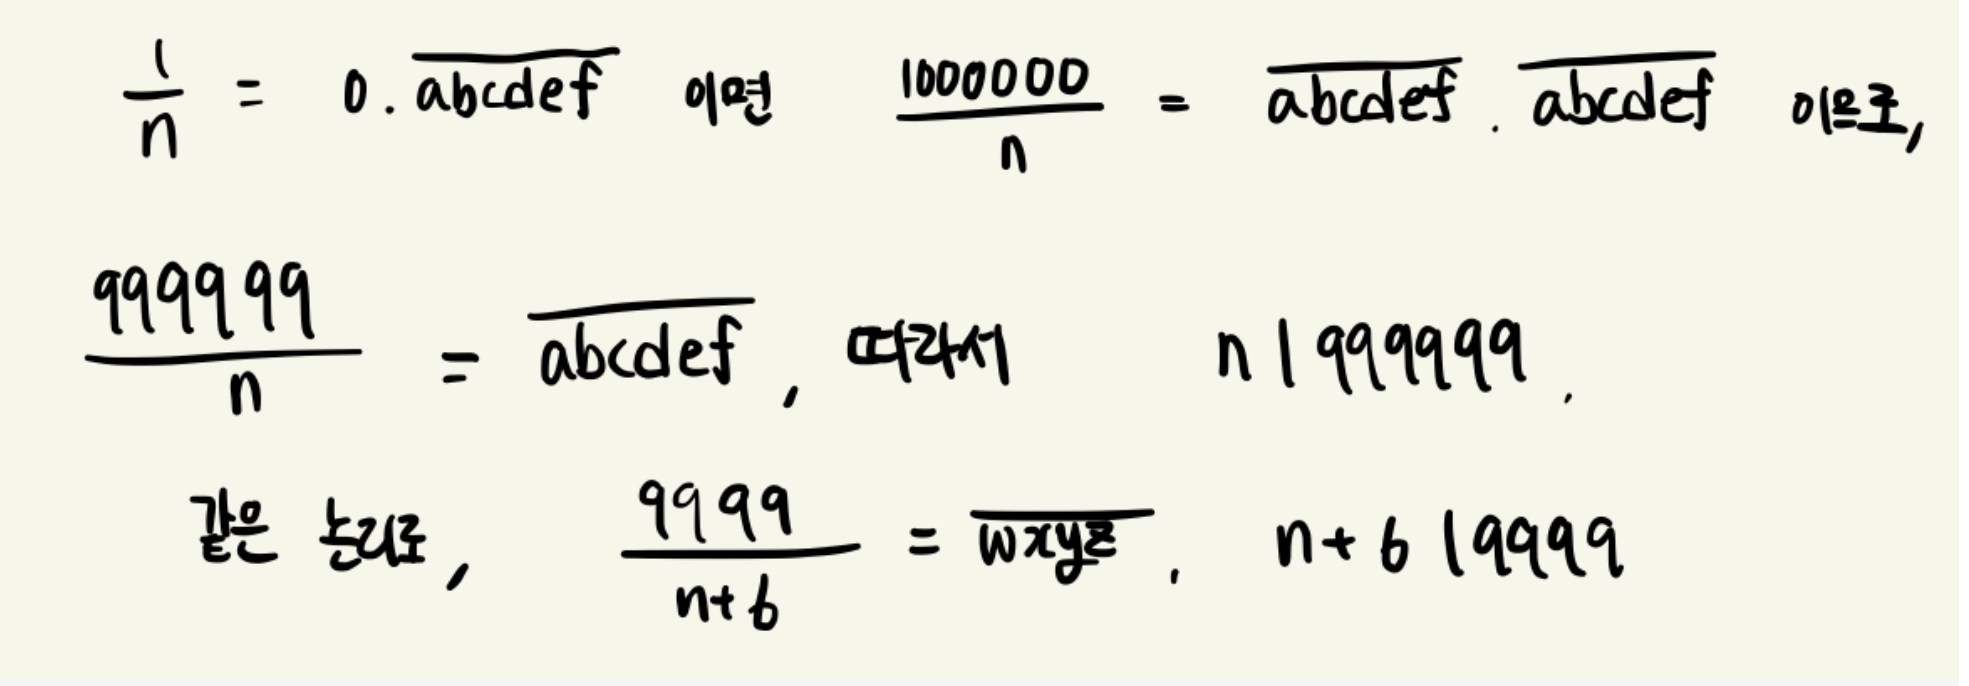 1/n = 0.\overline{abcdef} 이면 1000000/n = \overline{abcdef}.\overline{abcdef} 이므로,
999999/n = \overline{abcdef}, 따라서 n | 999999.
같은 논리로, 9999/n+6 = \overline{wxyz}. n+6 | 9999